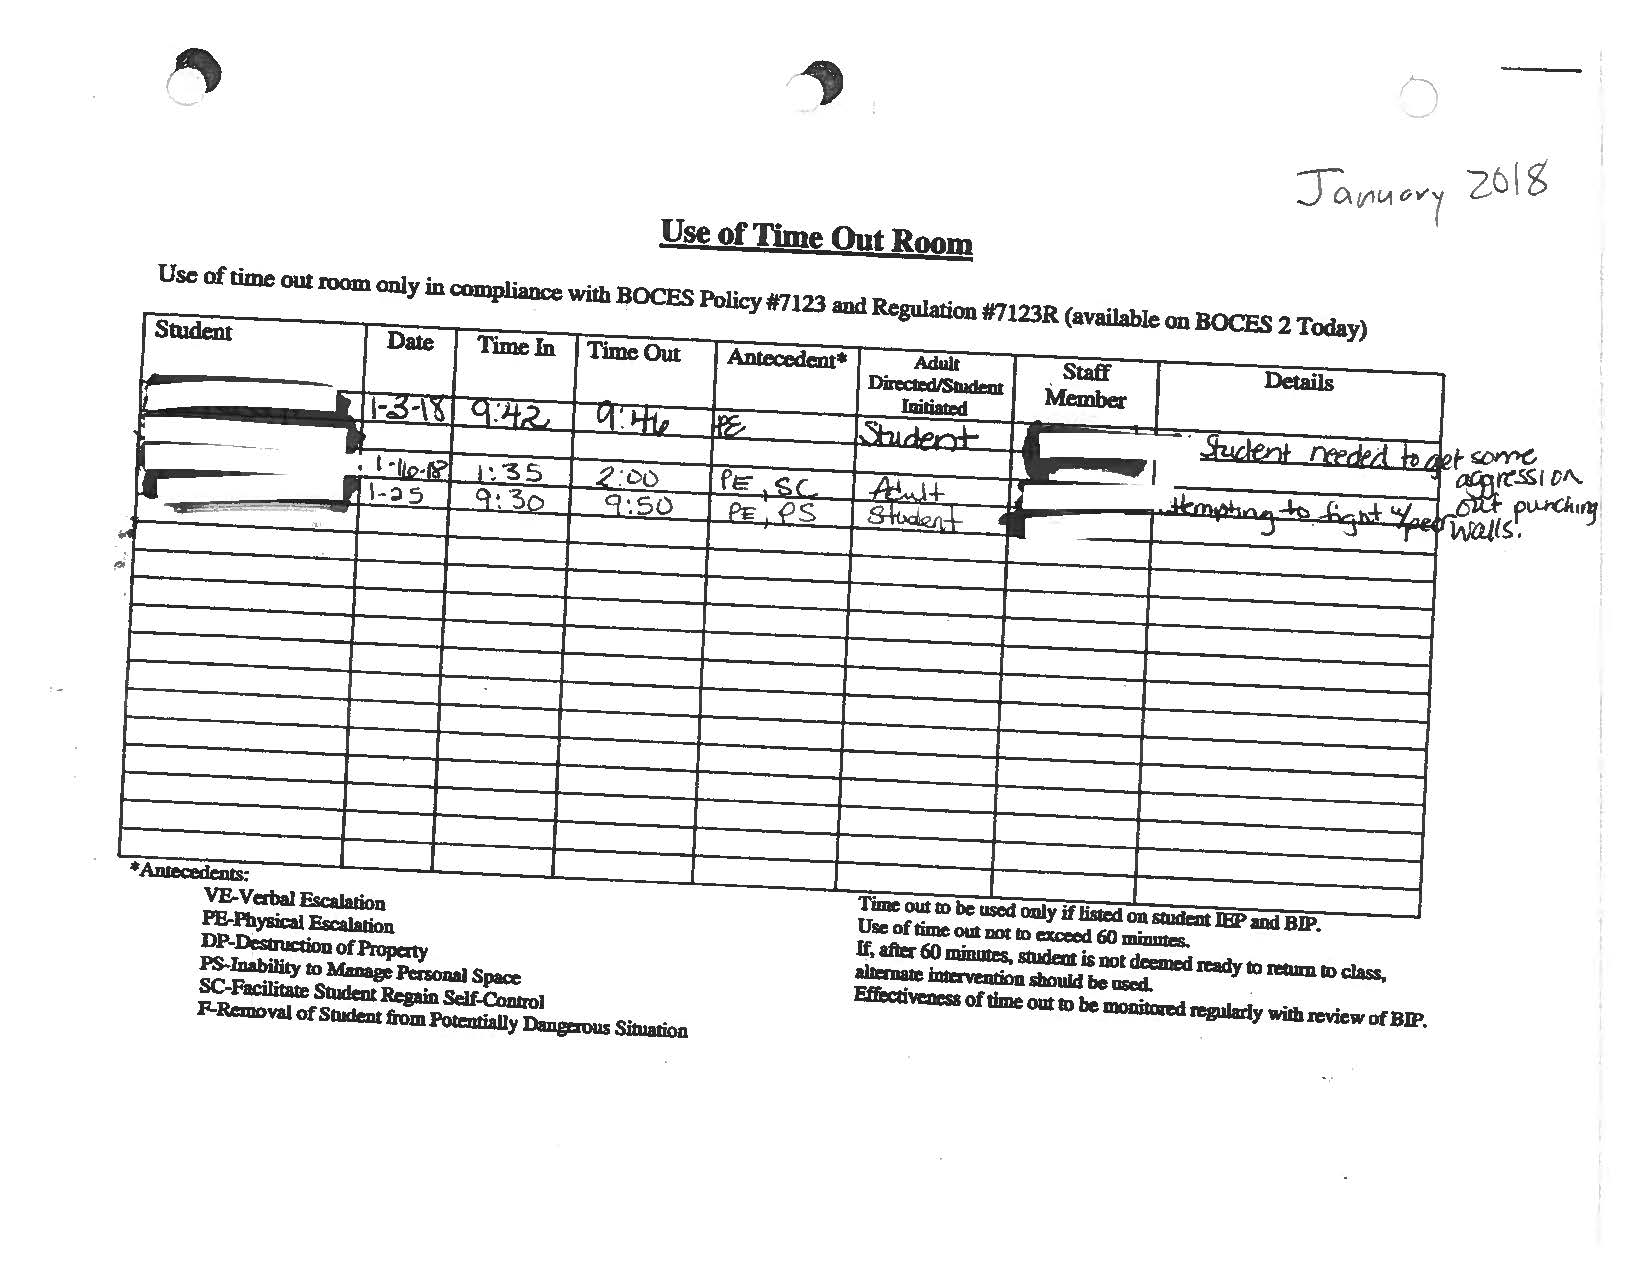 January 2018
Use of Time Out Room
Use of time out room only in compliance with BOCES Policy #7123 and Regulation #7123R (available on BOCES 2 Today)
Student Date Time In Time Out Antecedent* Adult Directed/Student Initiated Staff Member Details
1-3-18 9:42 9:46 PE Student Student needed to get some aggression out punching walls.
1-16-18 1:35 2:00 PE, SC Adult
1-25 9:30 9:50 PE, PS Student ttempting to fight w/peer
*Antecedents:
VE-Verbal Escalation
PE-Physical Escalation
DP-Destruction of Property
PS-Inability to Manage Personal Space
SC-Facilitate Student Regain Self-Control
F-Removal of Student from Potentially Dangerous Situation
Time out to be used only if listed on student IEP and BIP.
Use of time out not to exceed 60 minutes.
If, after 60 minutes, student is not deemed ready to return to class,
alternate intervention should be used.
Effectiveness of time out to be monitored regularly with review of BIP.